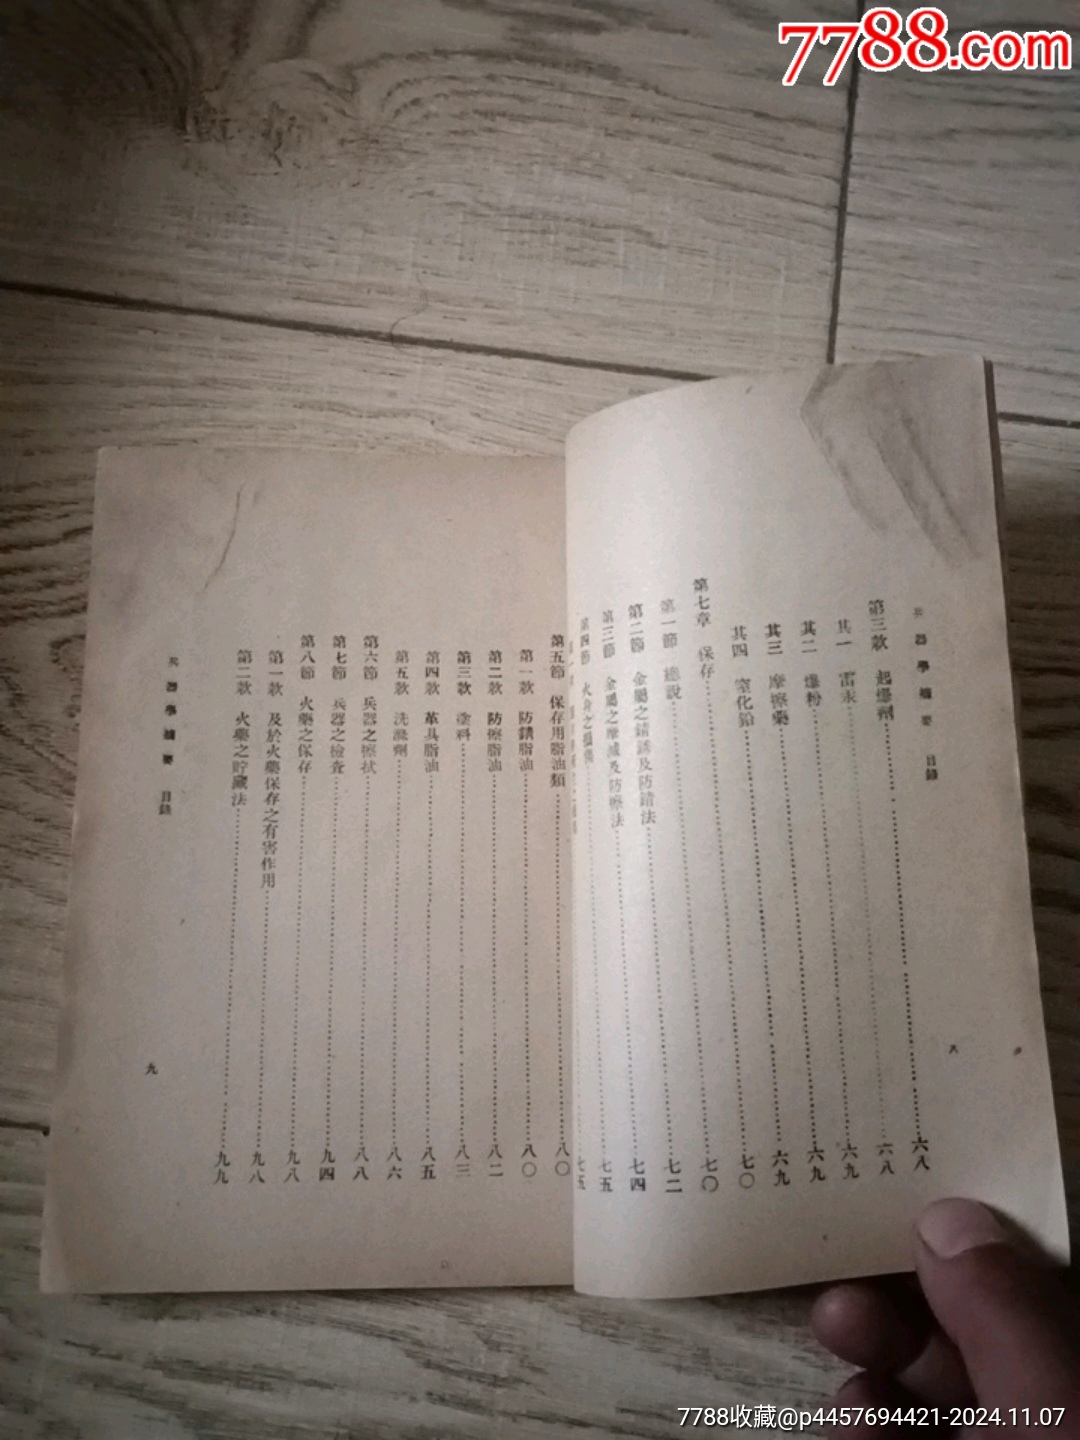 7788.com
兵器學摘要 目錄
第三款 起爆劑 六八
其一 雷汞 六八
其二 爆粉 六九
其三 摩擦藥 六九
其四 窒化鉛 六九
第七章 保存 七〇
第一節 總說 七〇
第二節 金屬之銹及防錆法 七二
第三節 金屬之摩滅及防擦法 七四
第四節 火身之 七五
七五
八
第五節 保存用脂油類 八〇
第一款 防錆脂油 八〇
第二款 防擦脂油 八二
第三款 塗料 八三
第四款 革具脂油 八五
第五款 洗滌劑 八六
第六節 兵器之擦拭 八八
第七節 兵器之檢查 九四
第八節 火藥之保存 九八
第一款 及於火藥保存之有害作用 九八
第二款 火藥之貯藏法 九九
兵器學摘要 目錄
九
7788收藏@p4457694421-2024.11.07